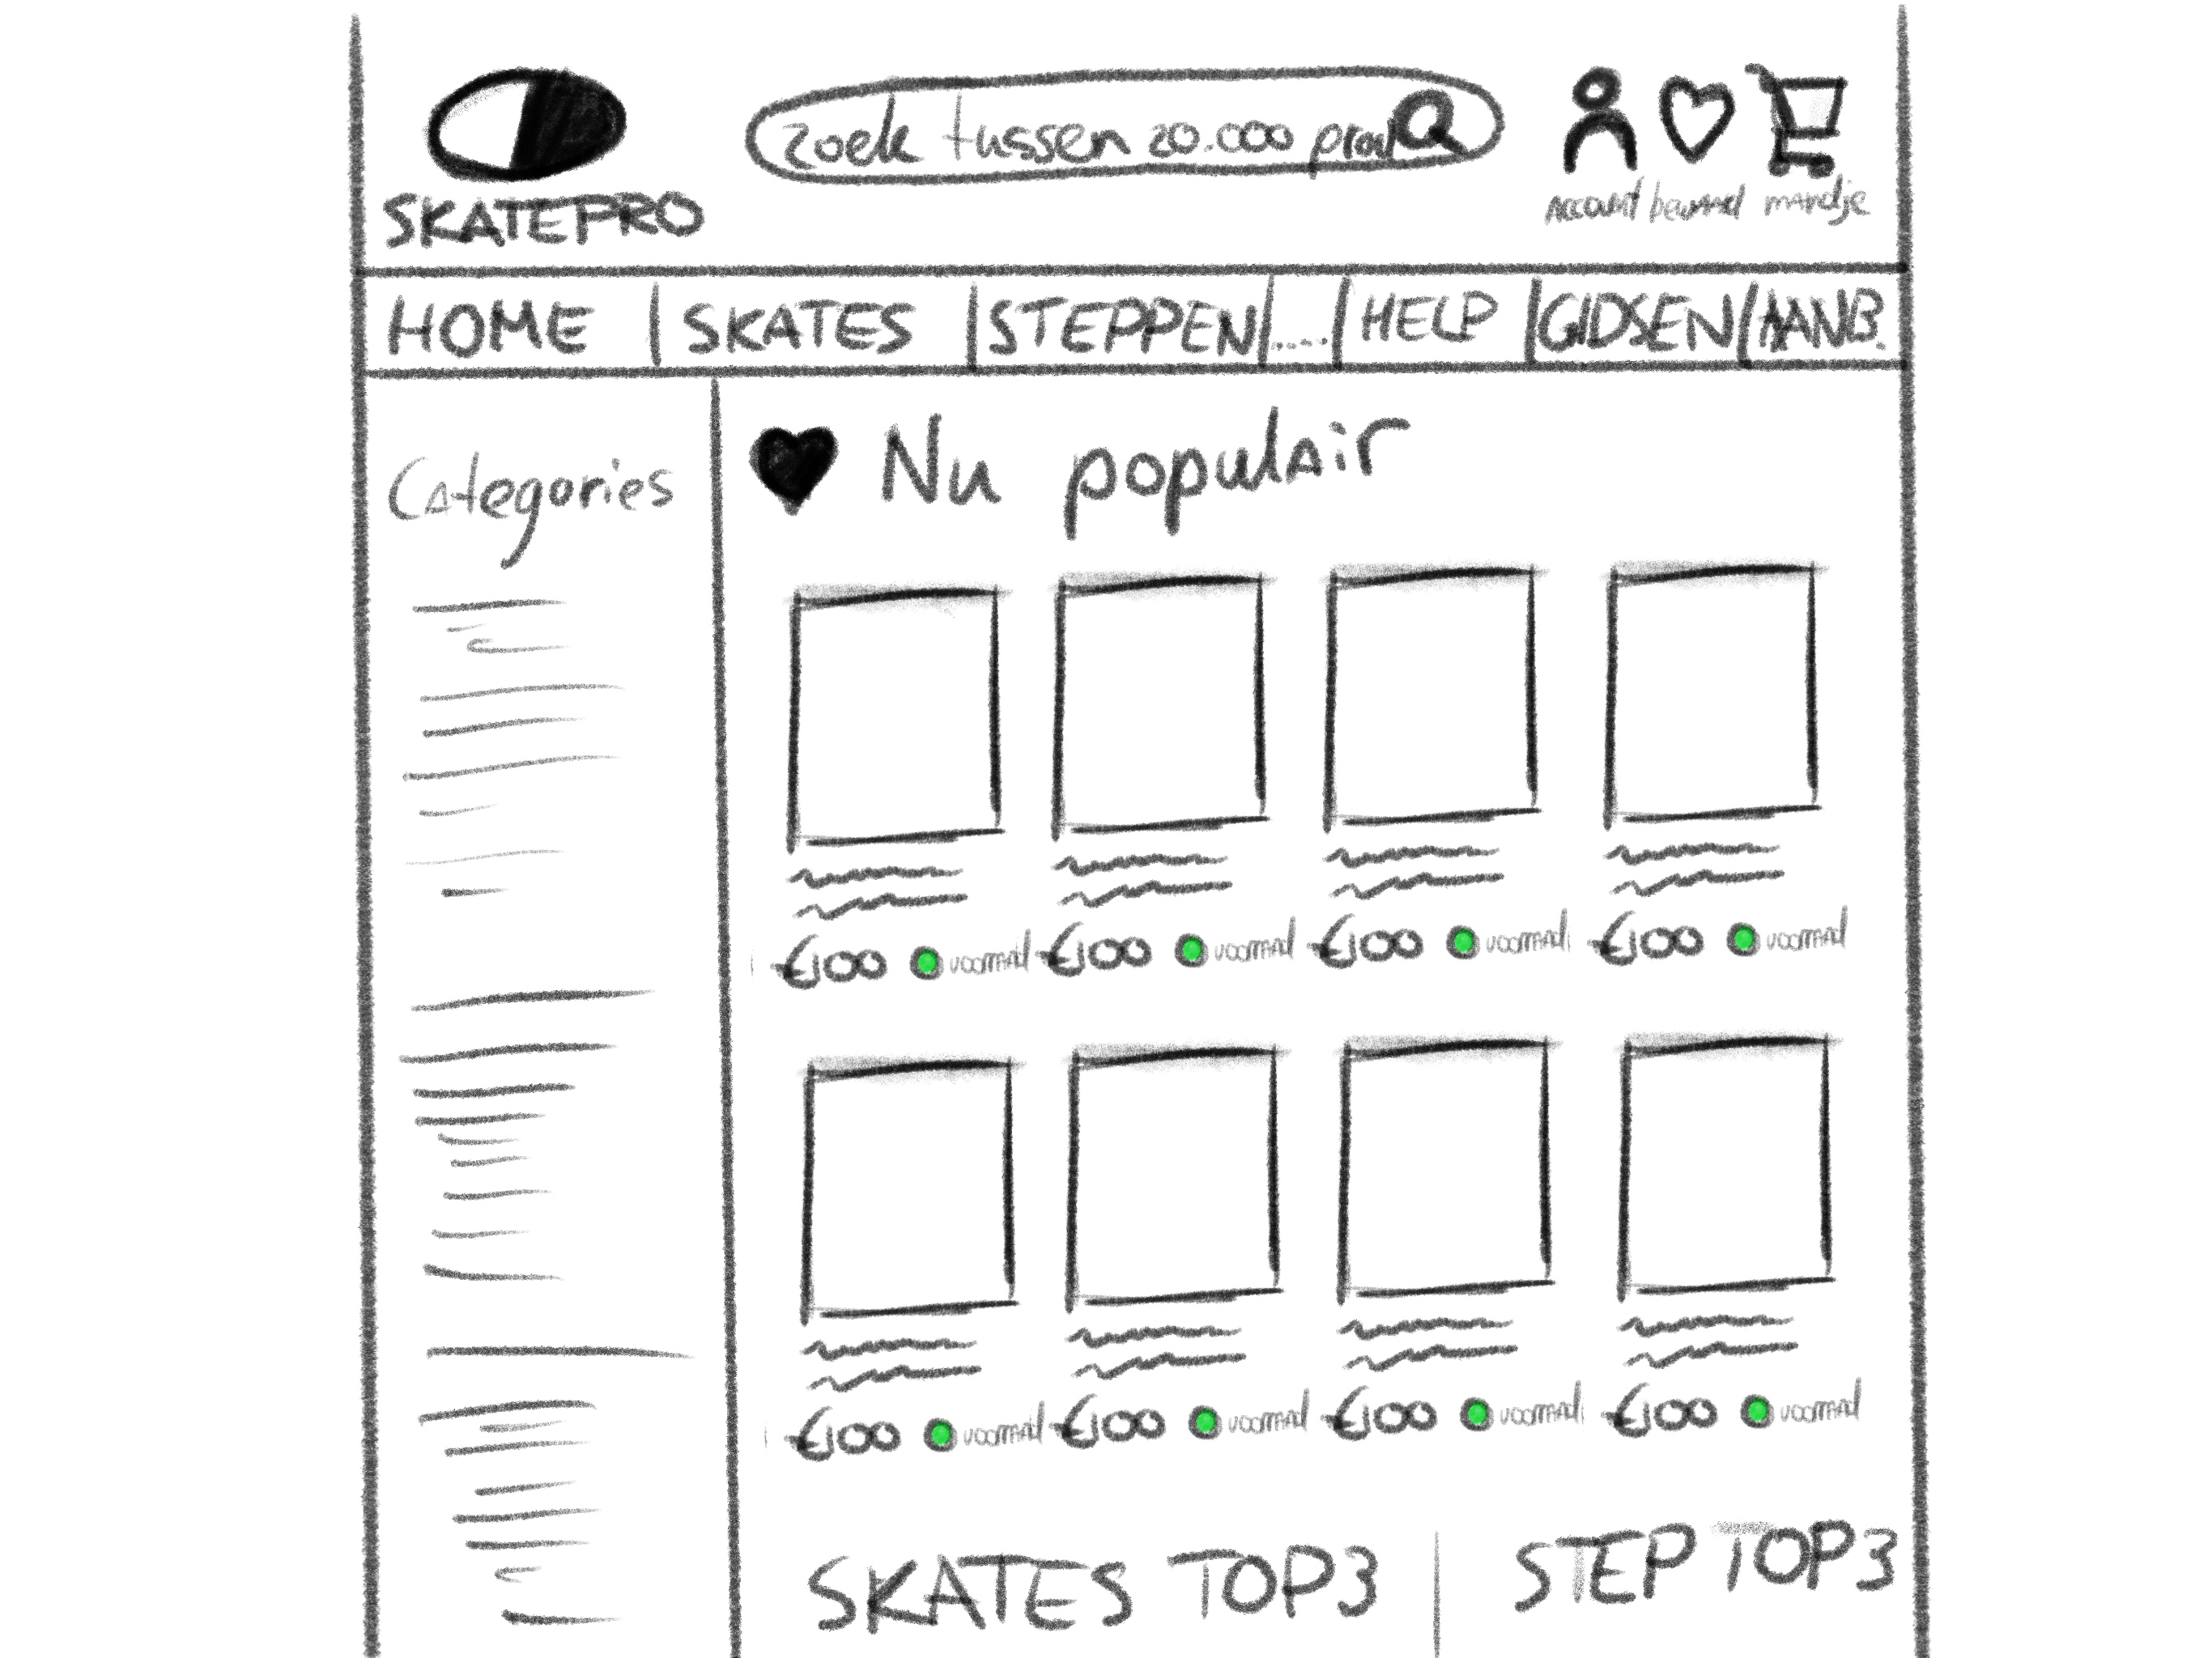 SKATEPRO
zoek tussen 20.000 prod
Account bewaard mandje
HOME | SKATES | STEPPEN | ..... | HELP | GIDSEN | AANB.
Categories
Nu populair
€100 voorraad €100 voorraad €100 voorraad €100 voorraad
€100 voorraad €100 voorraad €100 voorraad €100 voorraad
SKATES TOP3 | STEP TOP3